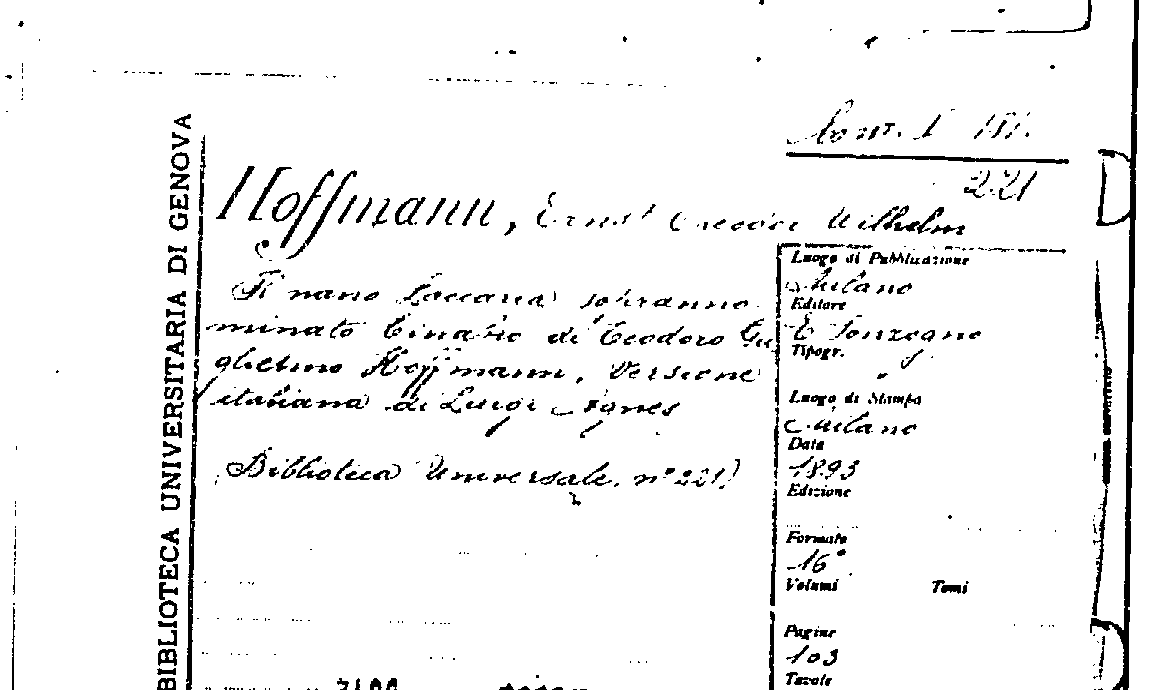 BIBLIOTECA UNIVERSITARIA DI GENOVA
221
Hoffmann, Ernst Teodor Wilhelm
Il nano Zaccaria sopranno
minato Cinabro di Teodoro Gu
glielmo Hoffmann, Versione
italiana di Luigi Agnes
Biblioteca Universale. n° 221)
Luogo di Pubblicazione
Milano
Editore
E Sonzogno
Tipogr.
Luogo di Stampa
Milano
Data
1893
Edizione
Formato
16°
Volumi Tomi
Pagine
103
Tavole